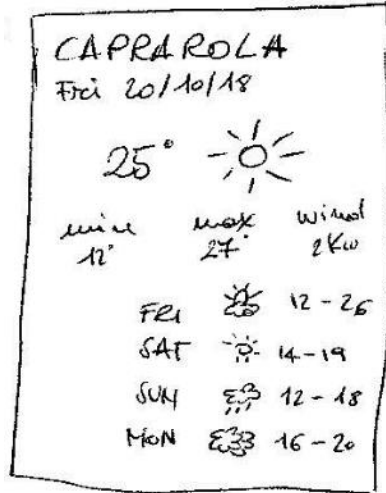 CAPRAROLA
Fri 20/10/18
25°
min max wind
12° 27° 2Kw
FRI 12-26
SAT 14-19
SUN 12-18
MON 16-20